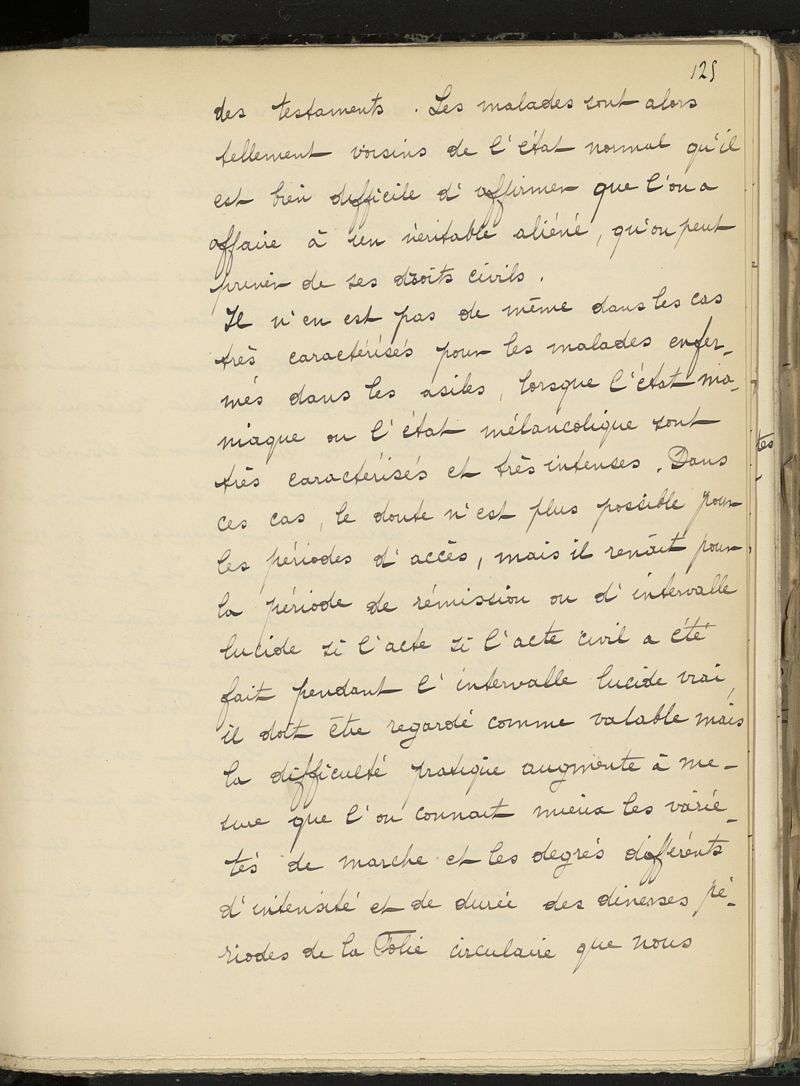 125
des testaments. Les malades sont alors
tellement voisins de l'état normal qu'il
est bien difficile d'affirmer que l'on a
affaire à un véritable aliéné, qu'on peut
priver de ses droits civils.
Il n'en est pas de même dans les cas
très caractérisés pour les malades enfer-
més dans les asiles, lorsque l'état ma-
niaque ou l'état mélancolique sont
très caractérisés et très intenses. Dans
ces cas, le doute n'est plus possible pour
les périodes d'accès, mais il renait pour
la période de rémission ou d'intervalle
lucide si l'acte si l'acte civil a été
fait pendant l'intervalle lucide vrai,
il doit être regardé comme valable mais
la difficulté pratique augmente à me-
sure que l'on connait mieux les varié-
tés de marche et les degrés différents
d'intensité et de durée des diverses pé-
riodes de la Folie circulaire que nous
tes